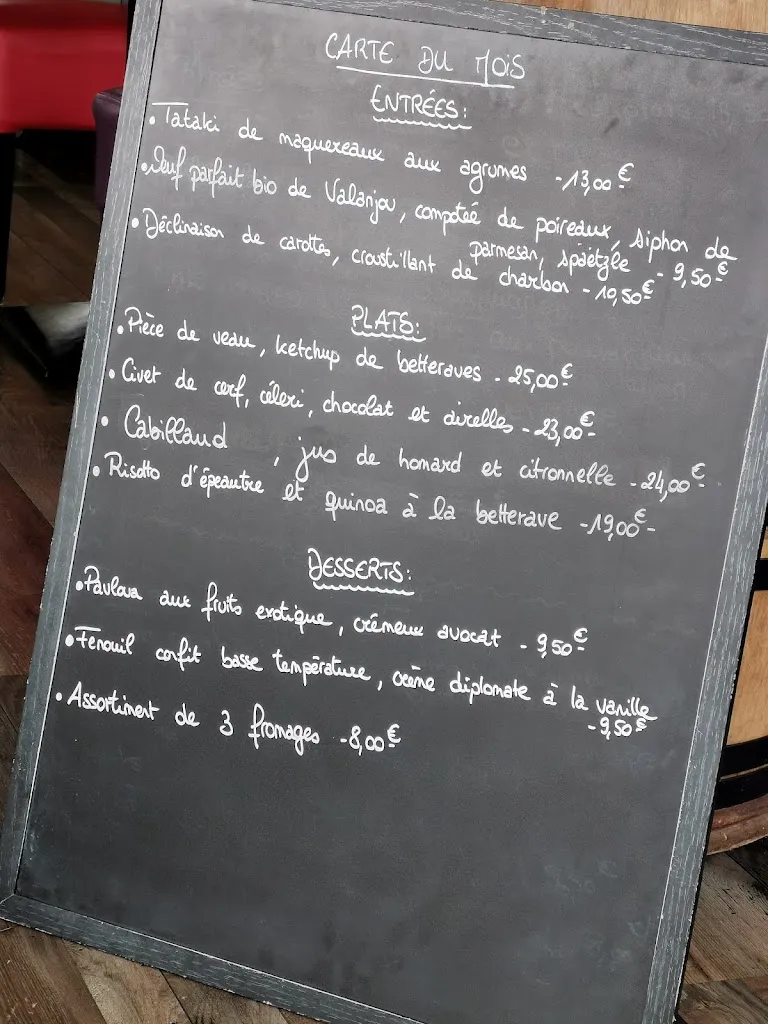 CARTE DU MOIS
ENTRÉES:
• Tataki de maquereaux aux agrumes - 13,00€
• Oeuf parfait bio de Valanjou, compotée de poireaux, siphon de
parmesan, spaëtzle - 9,50€
• Déclinaison de carottes, croustillant de charbon - 10,50€
PLATS:
• Pièce de veau, ketchup de betteraves - 25,00€
• Civet de cerf, céleri, chocolat et airelles - 23,00€-
• Cabillaud , jus de homard et citronnelle - 24,00€-
• Risotto d'épeautre et quinoa à la betterave - 19,00€-
DESSERTS:
• Pavlova aux fruits exotique, crémeux avocat - 9,50€
• Fenouil confit basse température, crème diplomate à la vanille
- 9,50€
• Assortiment de 3 fromages - 8,00€